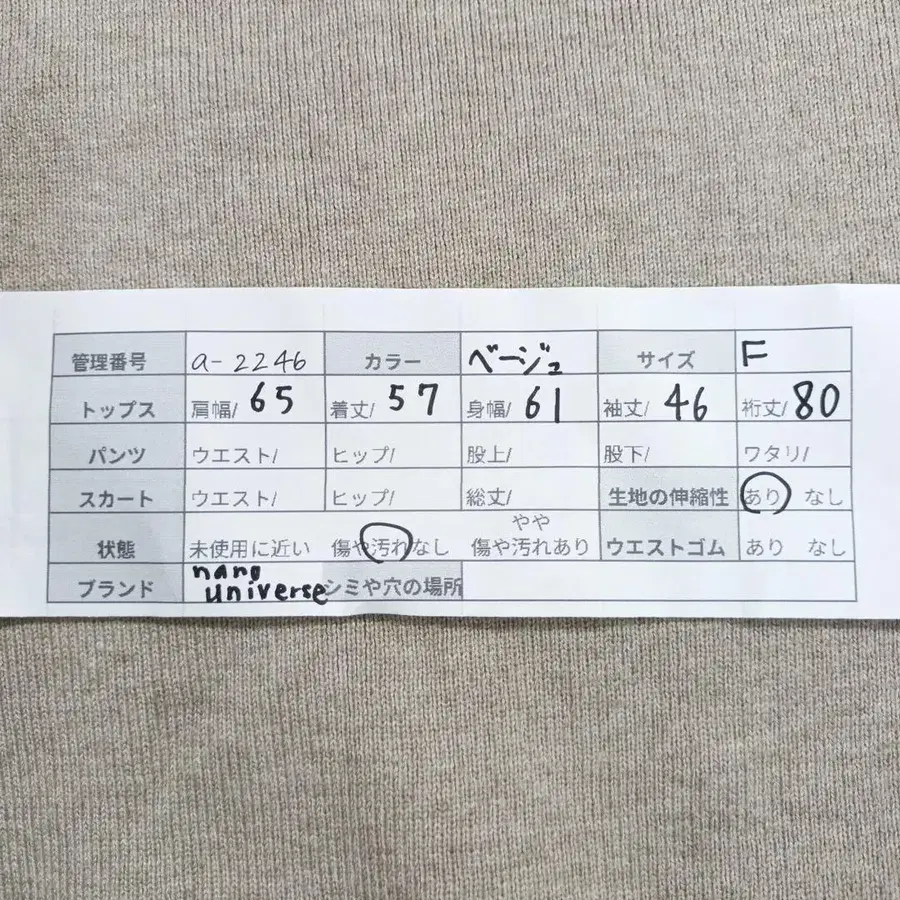 管理番号 a-2246 カラー ベージュ サイズ F
トップス 肩幅/ 65 着丈/ 57 身幅/ 61 袖丈/ 46 裄丈/ 80
パンツ ウエスト/ ヒップ/ 股上/ 股下/ ワタリ/
スカート ウエスト/ ヒップ/ 総丈/ 生地の伸縮性 あり なし
状態 未使用に近い 傷や汚れなし やや傷や汚れあり ウエストゴム あり なし
ブランド nano universe シミや穴の場所